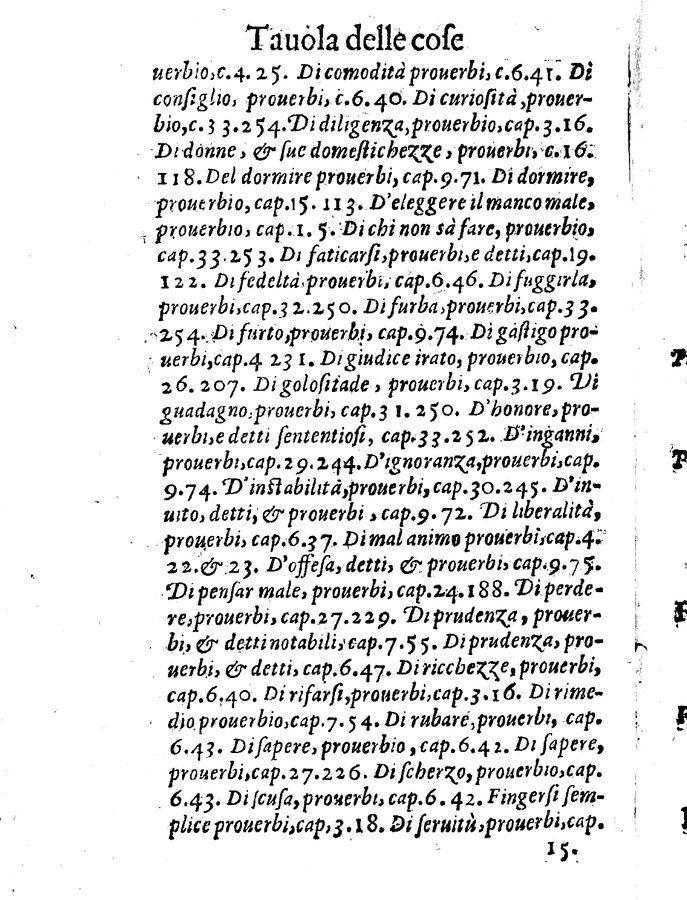 Tauola delle coſe
uerbio,c.4. 25. Di comodità prouerbi, c.6.41. Di
conſiglio, prouerbi, c.6.40. Di curioſità, prouer-
bio,c.33.254. Di diligenza,prouerbio,cap.3.16.
Di donne, & ſue domeſtichezze, prouerbi, c.16.
118. Del dormire prouerbi, cap.9.71. Di dormire,
prouerbio, cap.15. 113. D'eleggere il manco male,
prouerbio, cap. 1. 5. Di chi non sà fare, prouerbio,
cap.33.253. Di faticarſi,prouerbi,e detti,cap.19.
122. Di fedeltà prouerbi, cap.6.46. Di fuggirla,
prouerbi,cap.32.250. Di furba,prouerbi,cap.33.
254. Di furto,prouerbi, cap.9.74. Di gaſtigo pro-
uerbi,cap.4 231. Di giudice irato, prouerbio, cap.
26. 207. Di goloſitade, prouerbi, cap.3.19. Di
guadagno,prouerbi, cap.31.250. D'honore, pro-
uerbi,e detti ſententioſi, cap.33.252. D'inganni,
prouerbi,cap.29.244. D'ignoranza,prouerbi,cap.
9.74. D'inſtabilità,prouerbi, cap.30.245. D'in-
uito, detti, & prouerbi, cap.9. 72. Di liberalità,
prouerbi, cap.6.37. Di mal animo prouerbi,cap.4.
22.& 23. D'offeſa, detti, & prouerbi, cap.9.75.
Di penſar male, prouerbi, cap.24.188. Di perde-
re,prouerbi, cap.27.229. Di prudenza, prouer-
bi, & detti notabili, cap.7.55. Di prudenza, pro-
uerbi, & detti, cap.6.47. Di ricchezze, prouerbi,
cap.6.40. Di rifarſi,prouerbi,cap.3.16. Di rime-
dio prouerbio,cap.7.54. Di rubare,prouerbi, cap.
6.43. Di ſapere, prouerbio, cap.6.42. Di ſapere,
prouerbi,cap.27.226. Di ſcherzo, prouerbio,cap.
6.43. Di ſcuſa, prouerbi, cap.6. 42. Fingerſi ſem-
plice prouerbi,cap,3.18. Di ſeruitù,prouerbi,cap.
15.